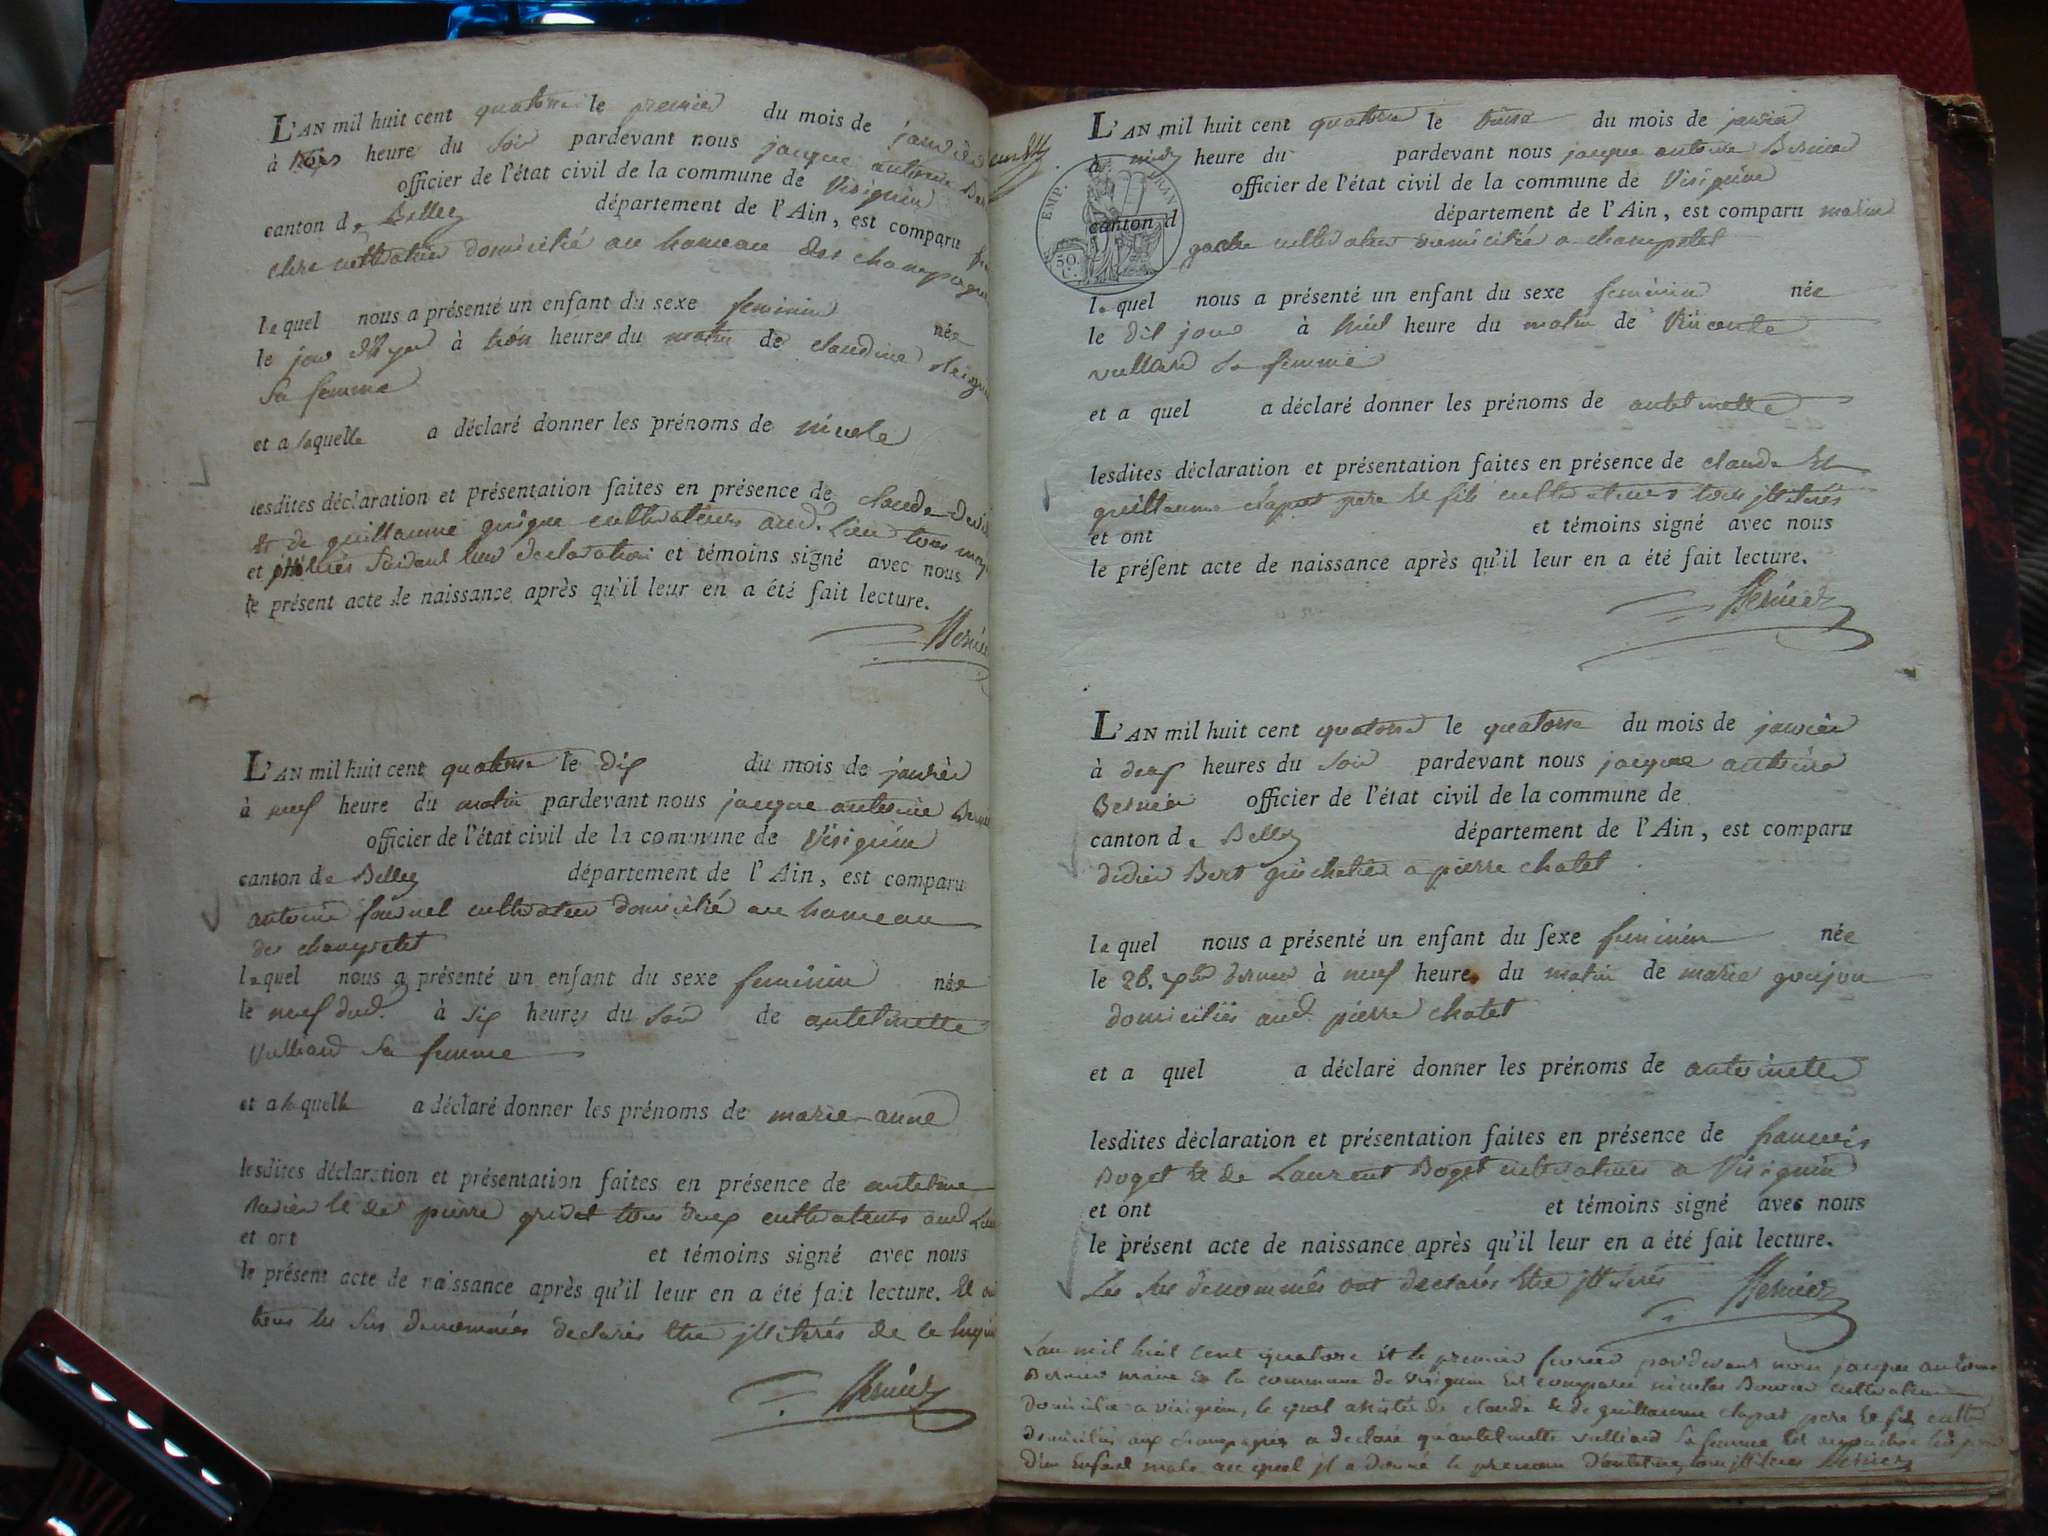 L'AN mil huit cent quatorze le premier du mois de janvier
à trois heure du soir pardevant nous jacque antoine
officier de l'état civil de la commune de Virignin
canton de Belley département de l'Ain, est comparu
cultivateur domicilié au hameau des champagne
lequel nous a présenté un enfant du sexe feminin née
le jour d'hyer à trois heures du matin de claudine
sa femme
et a laquelle a déclaré donner les prénoms de nicole
lesdites déclaration et présentation faites en présence de claude
et de guillaume cultivateurs aud. Lieu tous
et illiterés suivant leur declaration et témoins signé avec nous
le présent acte de naissance après qu'il leur en a été fait lecture.
Bernier
L'AN mil huit cent quatorze le dix du mois de janvier
à neuf heure du matin pardevant nous jacque antoine
officier de l'état civil de la commune de Virignin
canton de Belley département de l'Ain, est comparu
antoine fournel cultivateur domicilié au hameau
des champtel
lequel nous a présenté un enfant du sexe feminin née
le neuf dud. à six heures du soir de antelmette
vulliard sa femme
et a laquelle a déclaré donner les prénoms de marie-anne
lesdites déclaration et présentation faites en présence de antelme
et de pierre tous deux cultivateurs aud
et ont et témoins signé avec nous
le présent acte de naissance après qu'il leur en a été fait lecture. Et
tous les sus denommés declarés etre illiterés de ce
Bernier
L'AN mil huit cent quatorze le treize du mois de janvier
à midy heure du pardevant nous jacque antoine Bernier
EMP. FRAN
officier de l'état civil de la commune de Virignin
canton d département de l'Ain, est comparu
50. C.
cultivateur domicilié a champtel
lequel nous a présenté un enfant du sexe feminin née
le dit jour à huit heure du matin de Vincente
vulliard sa femme
et a quel a déclaré donner les prénoms de antelmette
lesdites déclaration et présentation faites en présence de claude Et
guillaume clapet pere et fils cultivateurs tous illiterés
et ont et témoins signé avec nous
le présent acte de naissance après qu'il leur en a été fait lecture.
Bernier
L'AN mil huit cent quatorze le quatorze du mois de janvier
à deux heures du soir pardevant nous jacque antoine
Bernier officier de l'état civil de la commune de
canton de Belley département de l'Ain, est comparu
didier Bert guichetier a pierre chatel
lequel nous a présenté un enfant du sexe feminin née
le 26. xbre dernier à neuf heures du matin de marie goujon
domiciliés aud. pierre chatel
et a quel a déclaré donner les prénoms de antoinette
lesdites déclaration et présentation faites en présence de francois
Boget et de Laurent Boget cultivateurs a Virignin
et ont et témoins signé avec nous
le présent acte de naissance après qu'il leur en a été fait lecture.
Les sus denommés ont declarés etre illiterés Bernier
Lan mil huit cent quatorze et le premier fevrier pardevant nous jacque antoine
Bernier maire de la commune de virignin est comparu nicolas Bouvier cultivateur
domicilié a virignin, le quel assisté de claude et de guillaume clapet pere et fils
domiciliés aux champagnes a declaré qu'antelmette vulliard sa femme est accouchée
d'un enfant male au quel il a donné le prenom d'antelme, illiteres Bernier